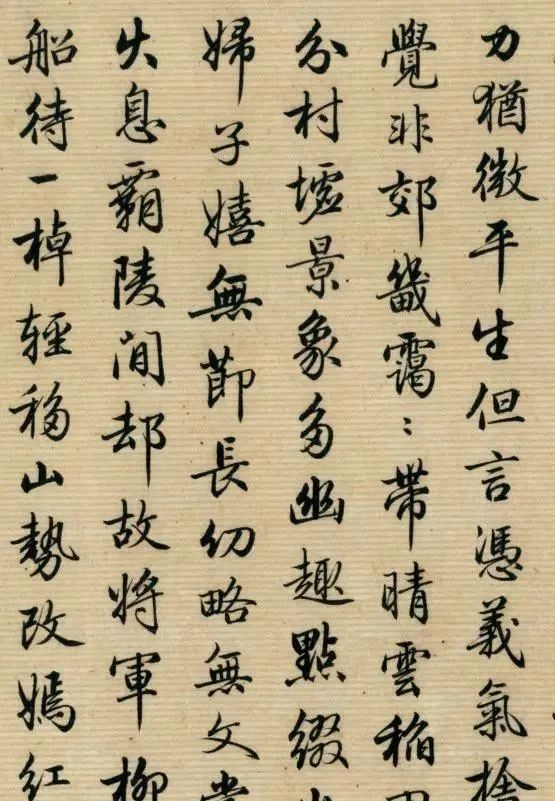 力猶微平生但言憑義氣捨
覺非郊畿靄〻帶晴雲稻
分村墟景象多幽趣點綴
婦子嬉無節長幼略無文
太息霸陵間却故將軍柳
船待一棹輕移山勢改嫣紅